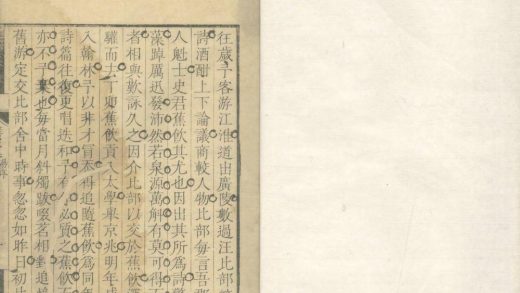 往歲予客游江淮道出廣陵數過汪比部
詩酒酣上下論議商較人物比部每言吾
人魁士史君蕉飲其尤也因出其所為詩
藻踔厲迅發沛然若泉源萬斛有莫可得
者相與歎詠久之因介比部以交於蕉飲
驩而士丁卯蕉飲貢入太學舉京兆明年成
入翰林予以非才冒忝再追隨蕉飲為同年
詩篇往復更唱迭和予有必質之蕉飲
亦不予棄也每當月斜燭跋啜茗相對追
舊游定交比部舍中時事忽忽如昨日初比